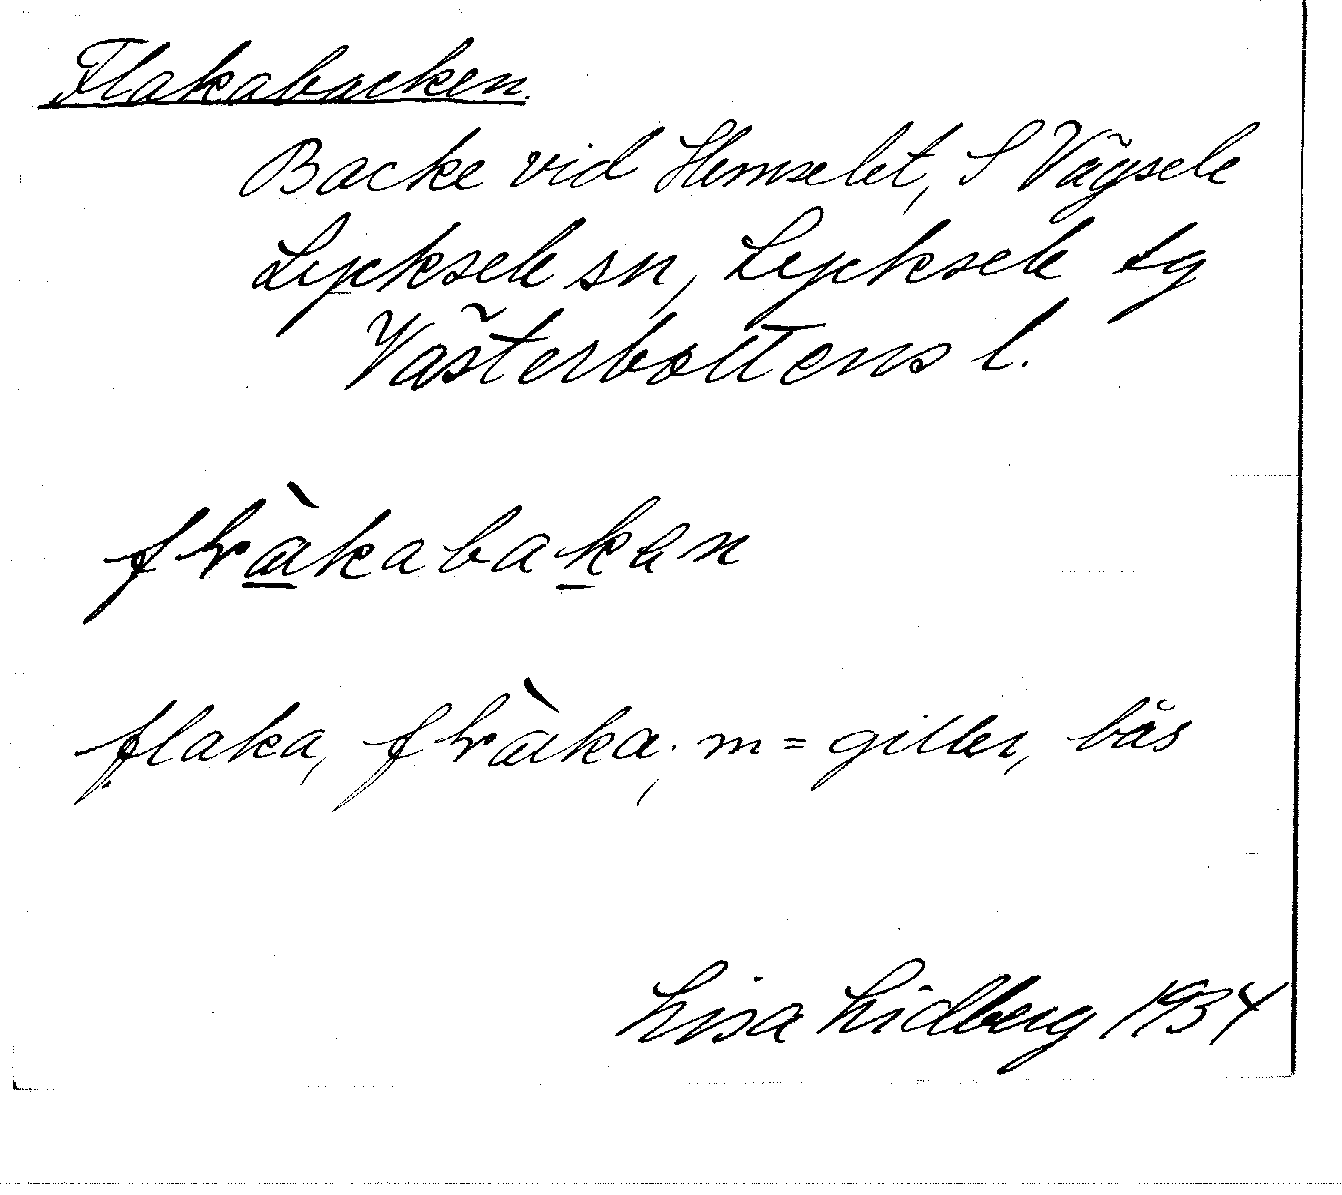 Flakabacken.
Backe vid Hemselet, S Vägsele
Lycksele sn, Lycksele tg
Västerbottens l.
flaka, m = giller, bås
Lisa Lidberg 1934